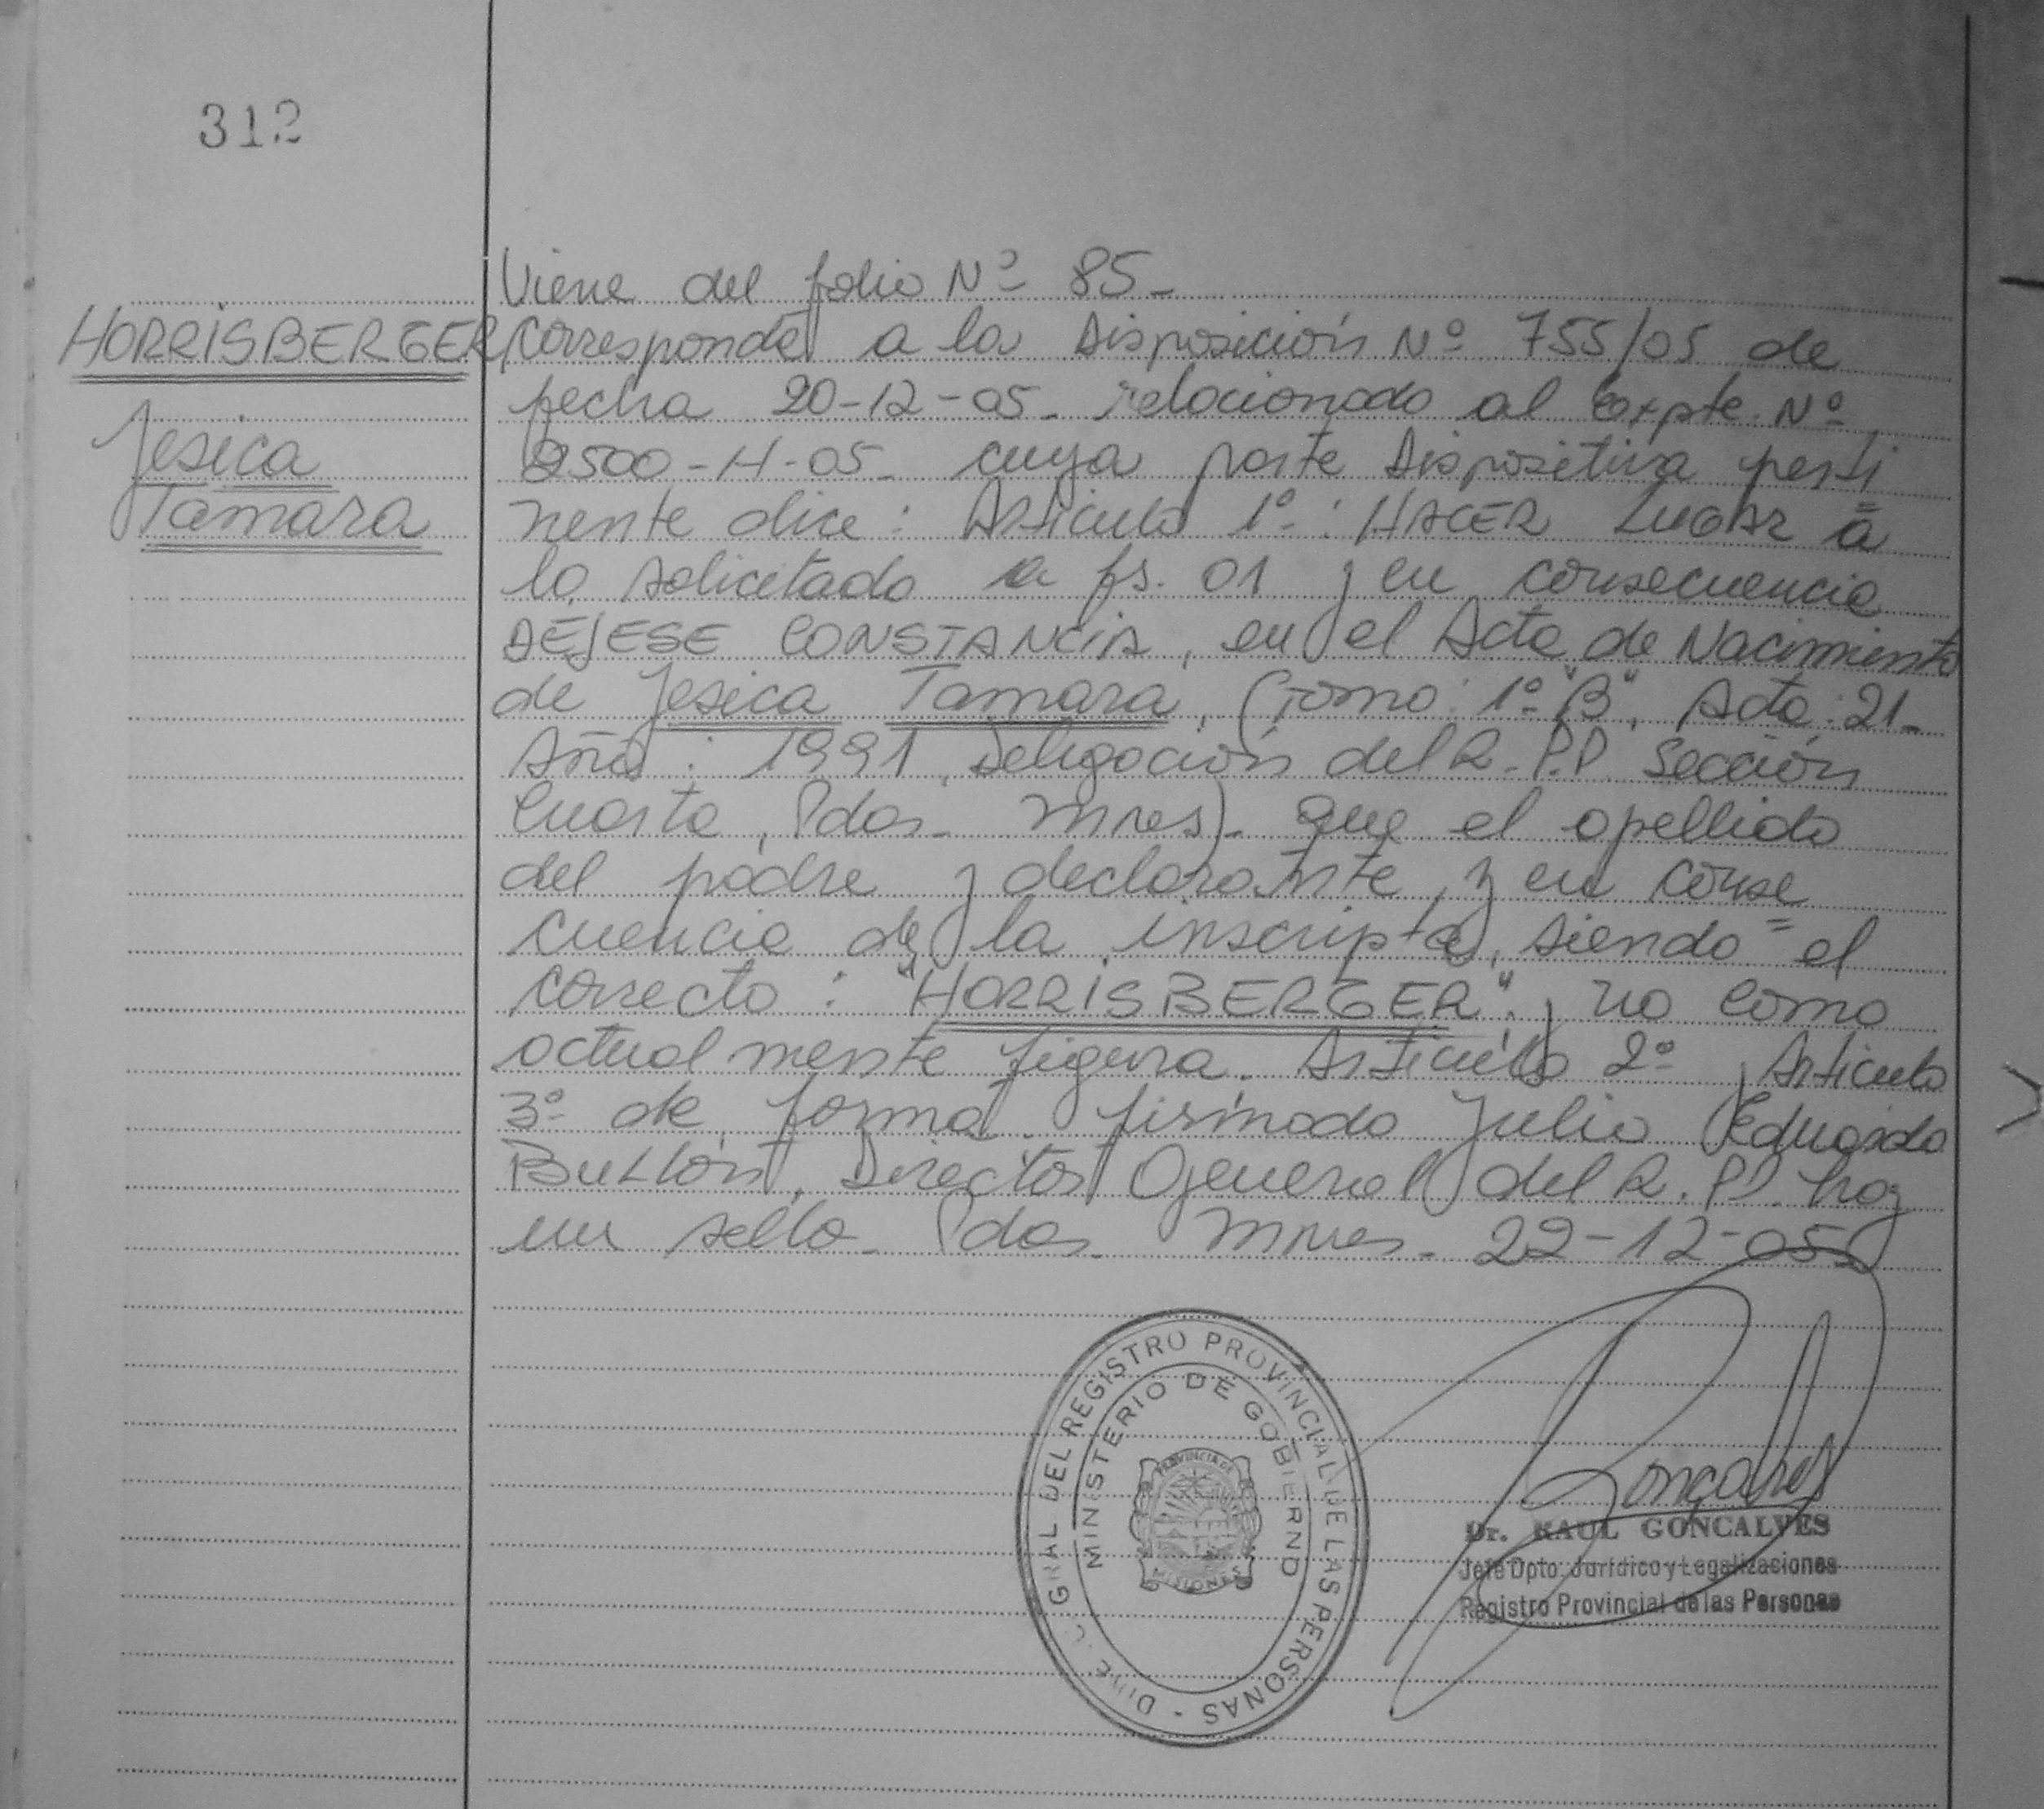 312
Viene del folio Nº 85_
HORRISBERGER
Jesica
Tamara
Corresponde a la Disposición Nº 755/05 de
fecha 20-12-05_ relacionado al Expte. Nº
2500-H-05_ cuya parte Dispositiva perti
nente dice: Artículo 1º: HACER LUGAR a
lo solicitado a fs. 01 y en consecuencia
DÉJESE CONSTANCIA, en el Acta de Nacimiento
de Jesica Tamara, (Tomo: 1º "B", Acta: 21_
Año: 1991, Delegación del R.P.P. Sección
Cuarta, Pdas_ Mnes)_ que el apellido
del padre y declarante, y en conse
cuencia de la inscripta, siendo el
correcto: "HORRISBERGER", y no como
actualmente figura. Artículo 2º y Artículo
3º de forma. firmado Julio Eduardo
Bullón, Director General del R.P.P. hay
un sello_ Pdas_ Mnes_ 22-12-05
DIREC. GRAL DEL REGISTRO PROVINCIAL DE LAS PERSONAS -
MINISTERIO DE GOBIERNO
PROVINCIA DE
MISIONES
Gonçalves
Dr. RAUL GONCALVES
Jefe Dpto. Jurídico y Legalizaciones
Registro Provincial de las Personas